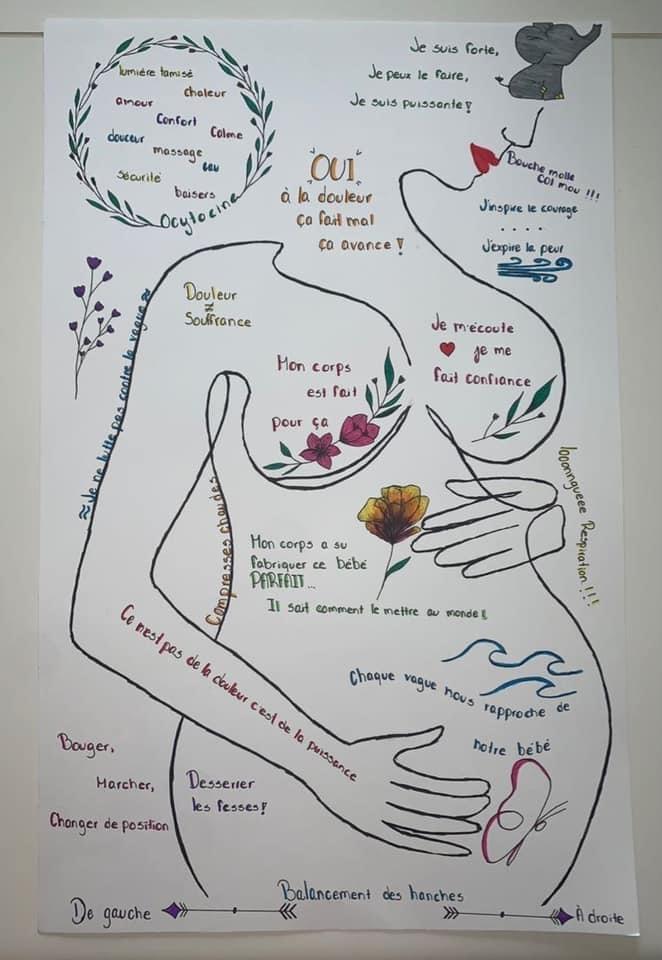 lumière tamisé
chaleur
amour
Confort
Calme
douceur
massage
Sécurité
baisers
Ocytocine
Je suis forte,
Je peux le faire,
Je suis puissante !
Bouche molle
Col mou !!!
J'inspire le courage
. . . .
J'expire la peur
OUI
à la douleur
ça fait mal
ça avance !
Douleur
≠
Souffrance
≈ Je ne lutte pas contre la vague ≈
Je m'écoute
je me
fait confiance
Mon corps
est fait
pour ça
Compresses chaudes
looonngueee Respiration !!!
Mon corps a su
fabriquer ce bébé
PARFAIT...
Il sait comment le mettre au monde !
Ce n'est pas de la douleur c'est de la puissance
Chaque vague nous rapproche de
notre bébé
Bouger,
Marcher,
Changer de position
Desserrer
les fesses !
Balancement des hanches
De gauche
À droite